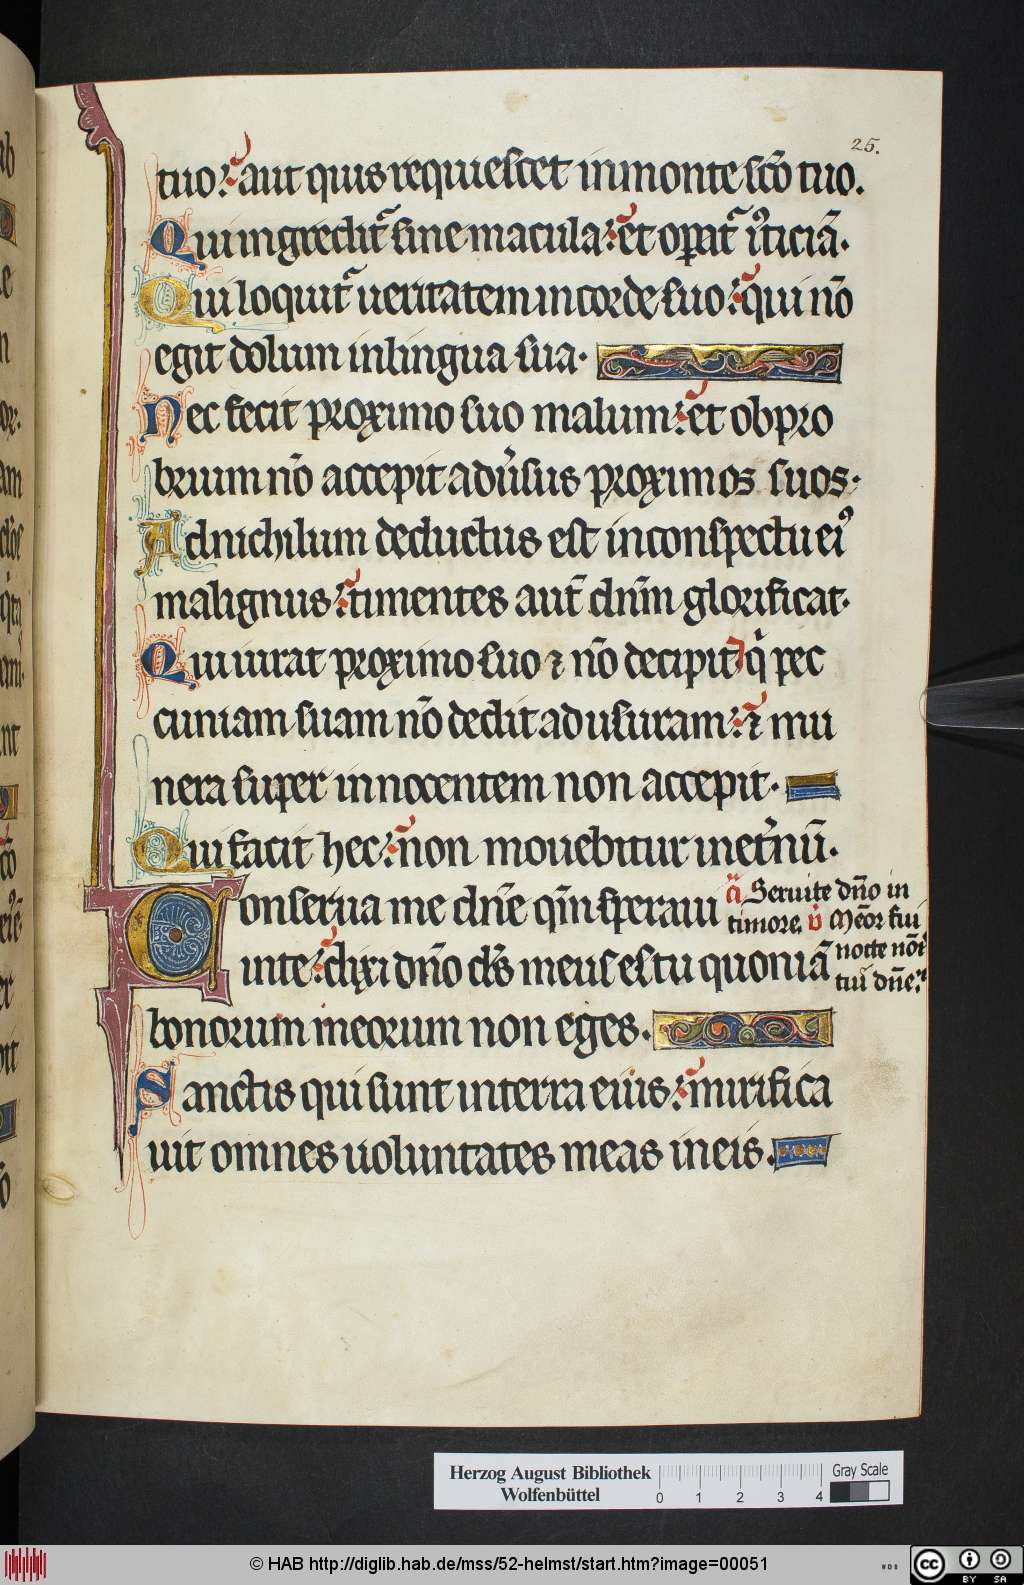 25.
tuo: aut quis requiescet in monte sc̄o tuo.
Qui ingredit᷑ sine macula: et op̄at᷑ iꝰticiā.
Qui loquit᷑ ueritatem in corde suo: qui nō
egit dolum in lingua sua.
Nec fecit proximo suo malum: et obpro
brium nō accepit adūsus proximos suos.
Ad nichilum deductus est in conspectu eiꝰ
malignus: timentes aut̄ dn̄m glorificat.
Qui iurat proximo suo ⁊ nō decipit q̇ pec
cuniam suam nō dedit ad usuram: ⁊ mu
nera super innocentem non accepit.
Qui facit hec: non mouebitur in et̄nū.
Conserua me dn̄e qm̄ speraui
in te: dixi dn̄o ds̄ meus es tu quoniā
bonorum meorum non eges.
Sanctis qui sunt in terra eius: mirifica
uit omnes uoluntates meas in eis.
a Seruite dn̄o in
timore. v Mēor fui
nocte nōi
tui dn̄e.
Herzog August Bibliothek
Wolfenbüttel
0 1 2 3 4
Gray Scale
© HAB http://diglib.hab.de/mss/52-helmst/start.htm?image=00051
WDB
cc BY SA